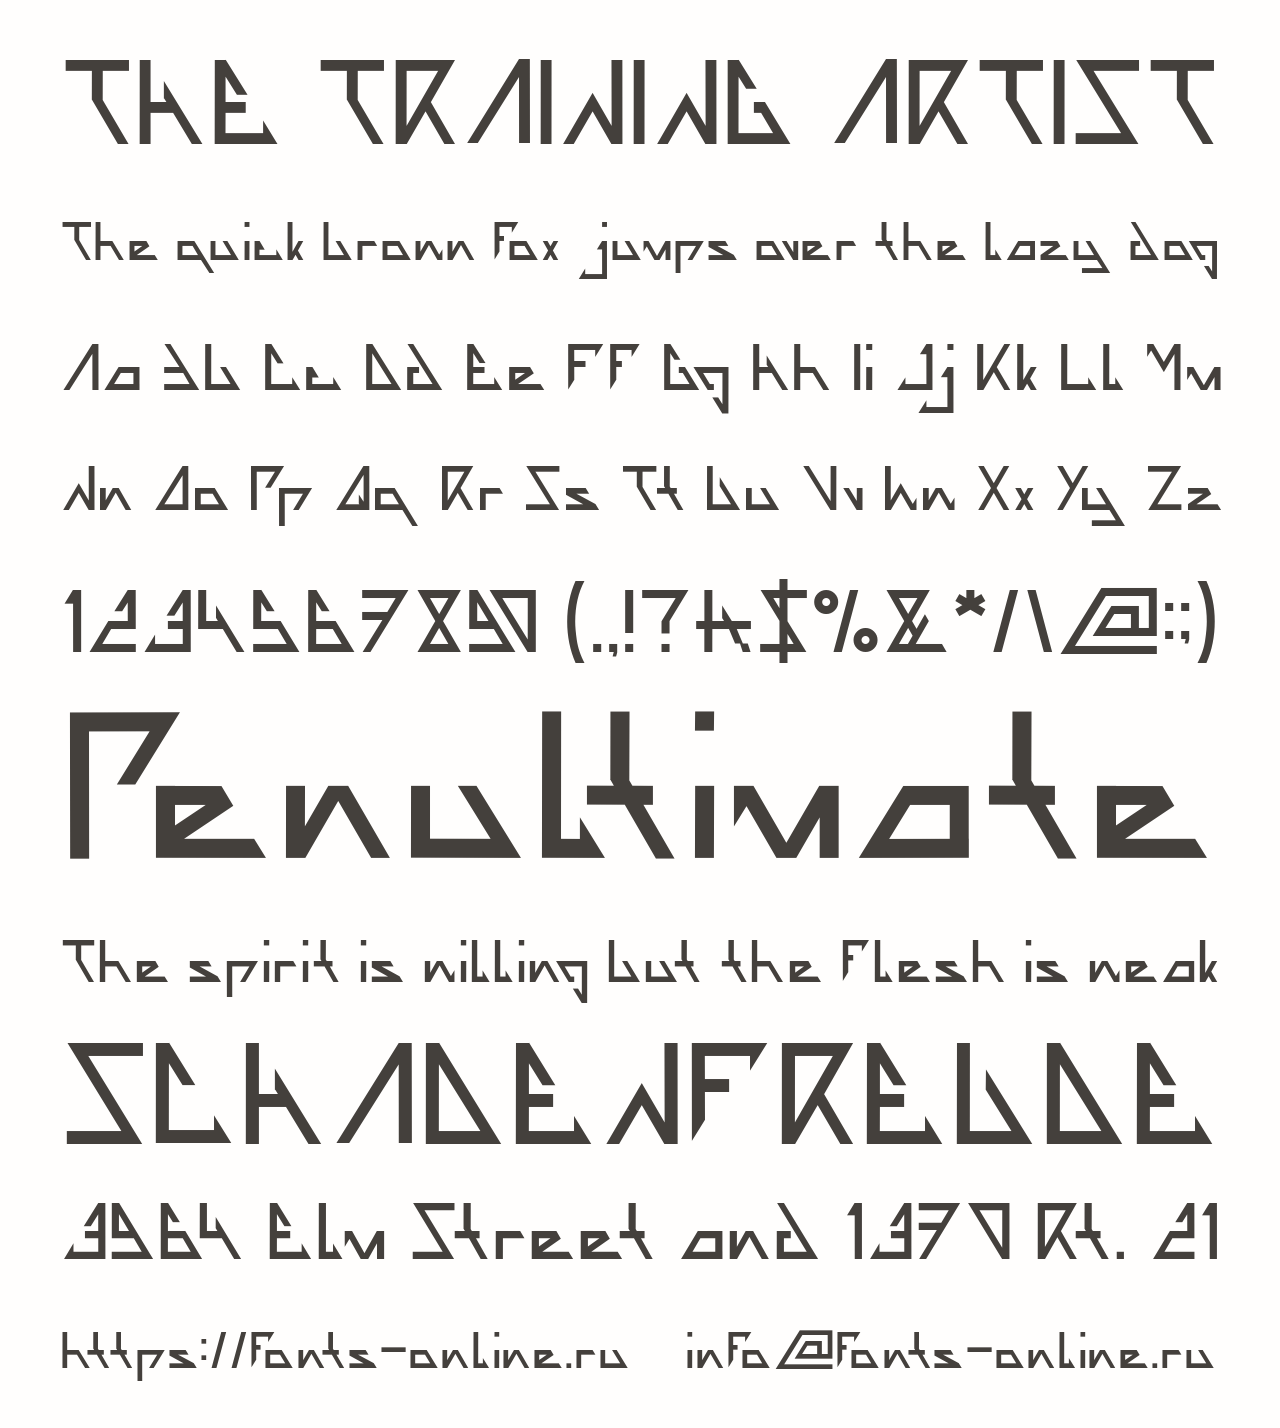 THE TRAINING ARTIST
The quick brown Fox jumps over the lazy dog
Aa Bb Cc Dd Ee Ff Gg Hh Ii Jj Kk Ll Mm
Nn Oo Pp Qq Rr Ss Tt Uu Vv Ww Xx Yy Zz
1234567890 (.,!?#$%&*/\@:;)
Penultimate
The spirit is willing but the flesh is weak
SCHADENFREUDE
3964 Elm Street and 1370 Rt. 21
https://fonts-online.ru info@fonts-online.ru